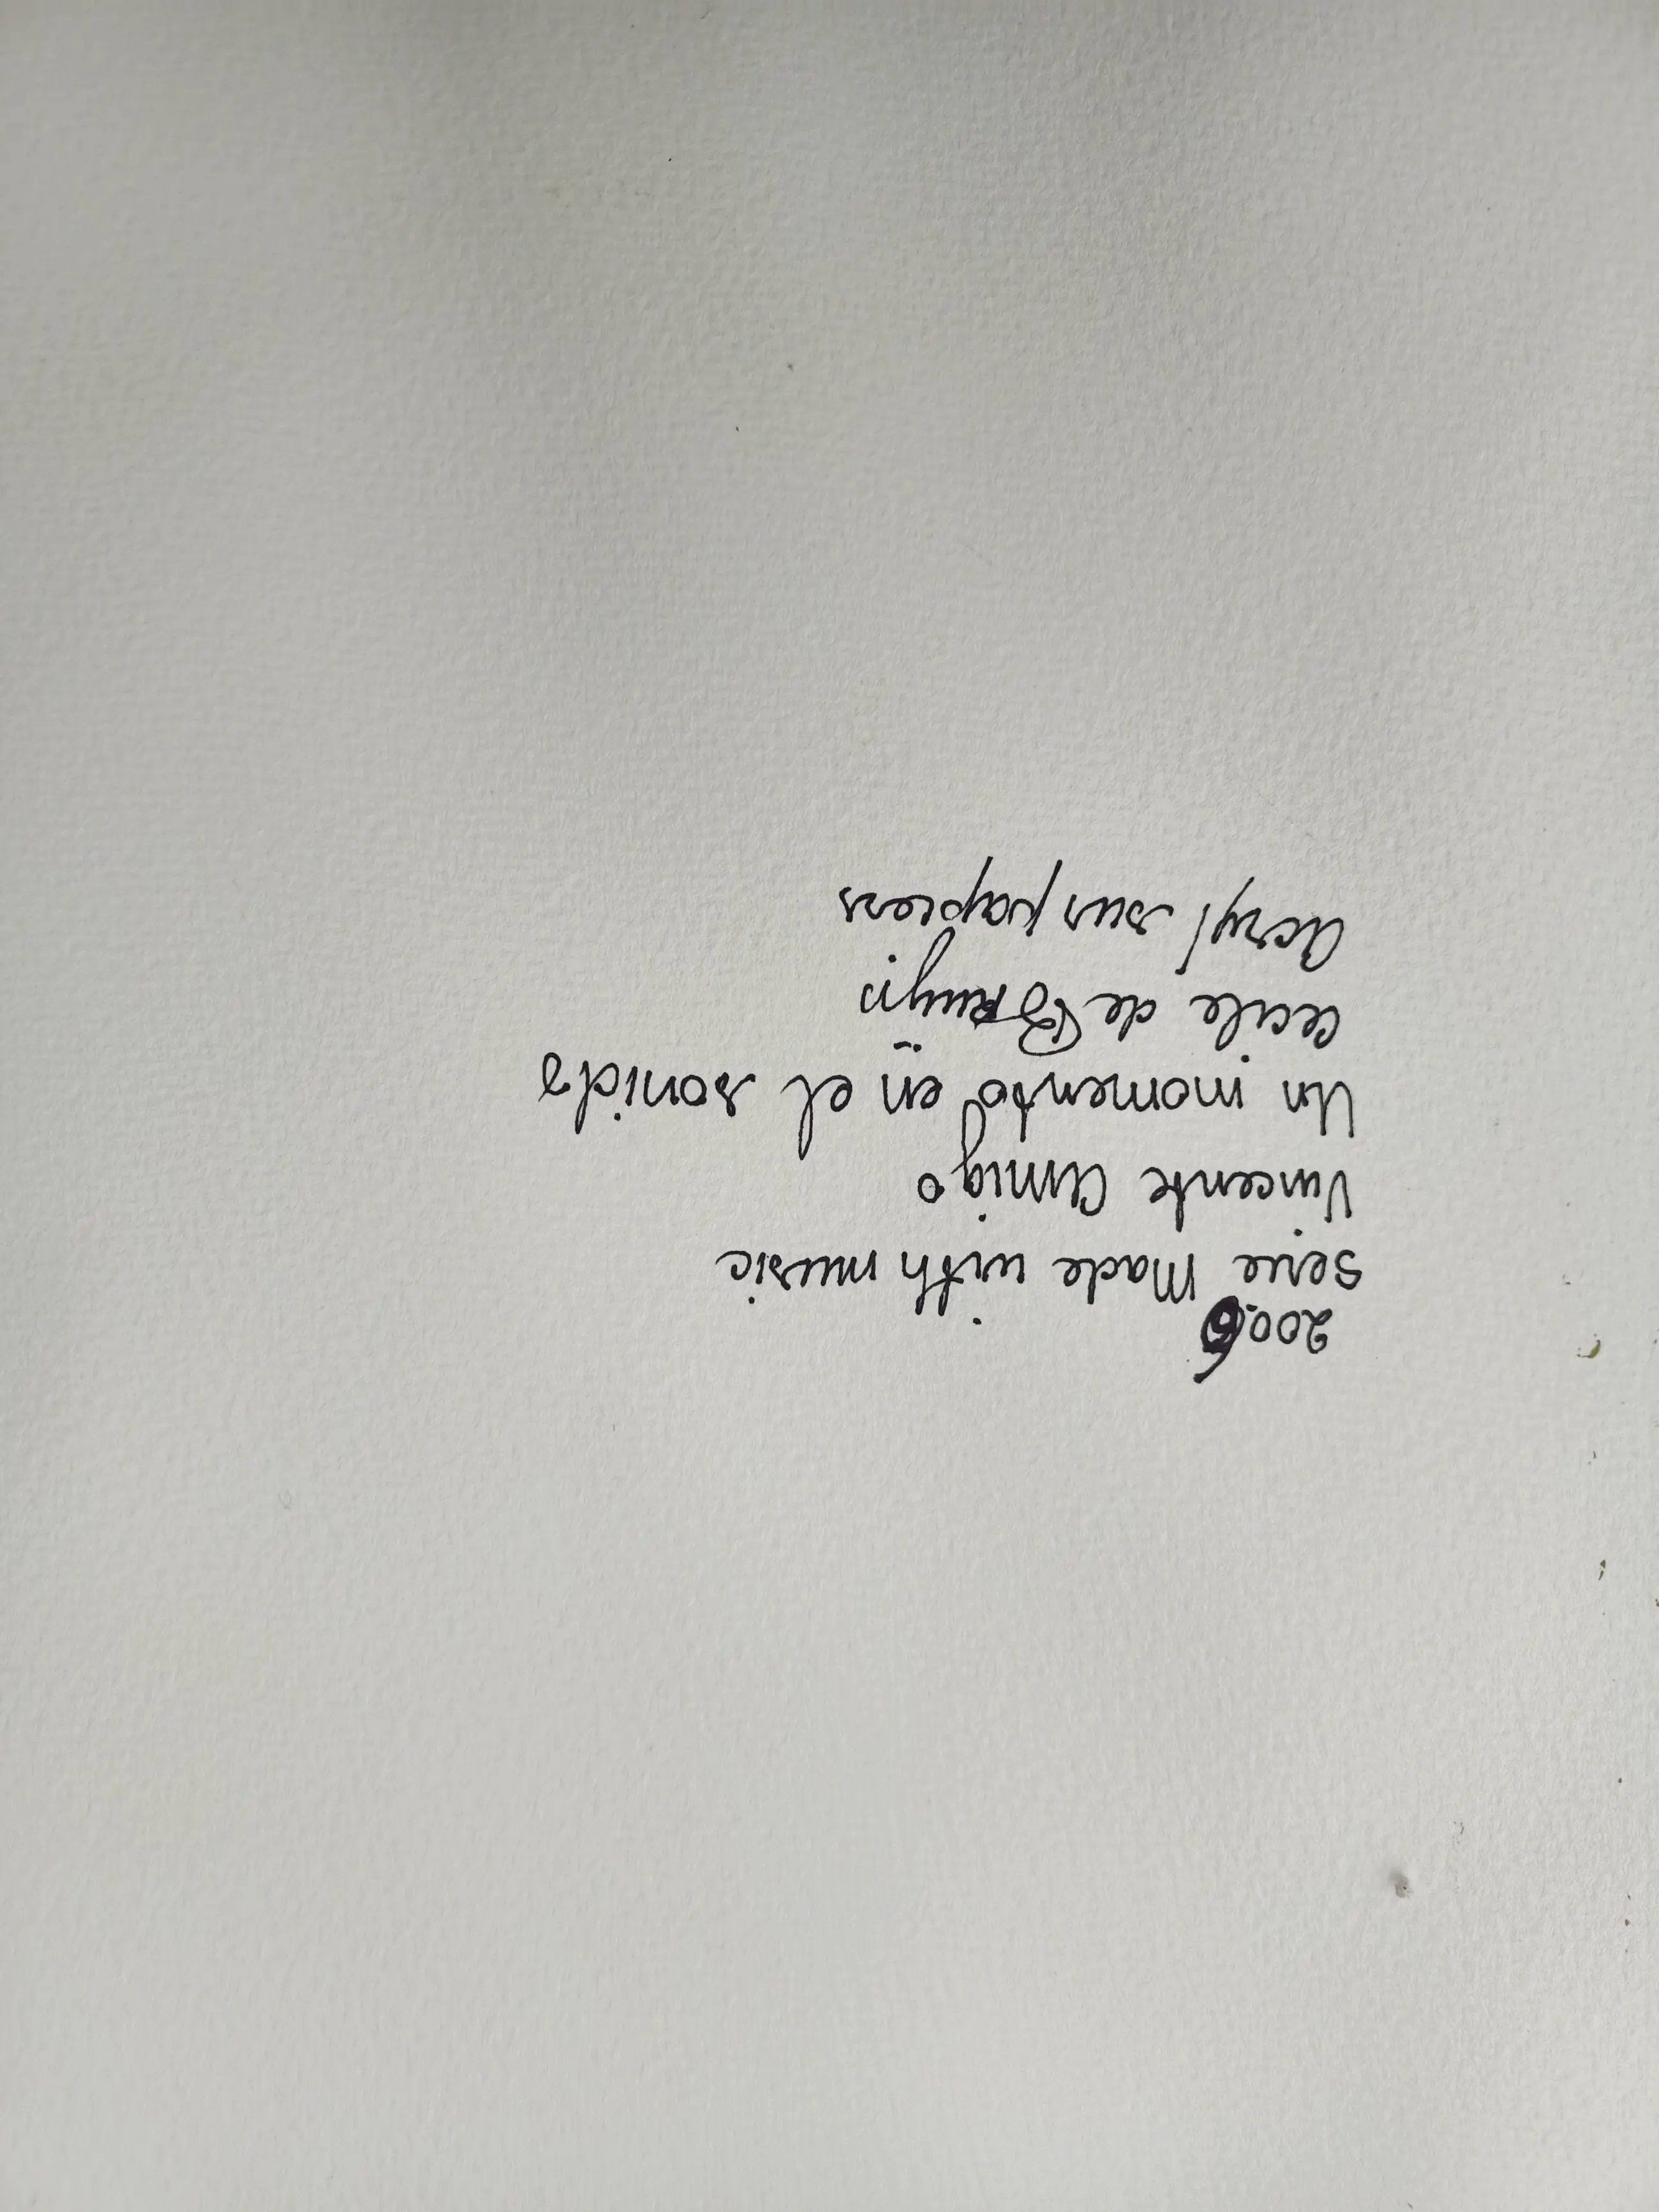 2006
Serie Made with music
Vincente Amigo
Un momento en el sonido
Cecile de Bruijn
Acryl sur papiers